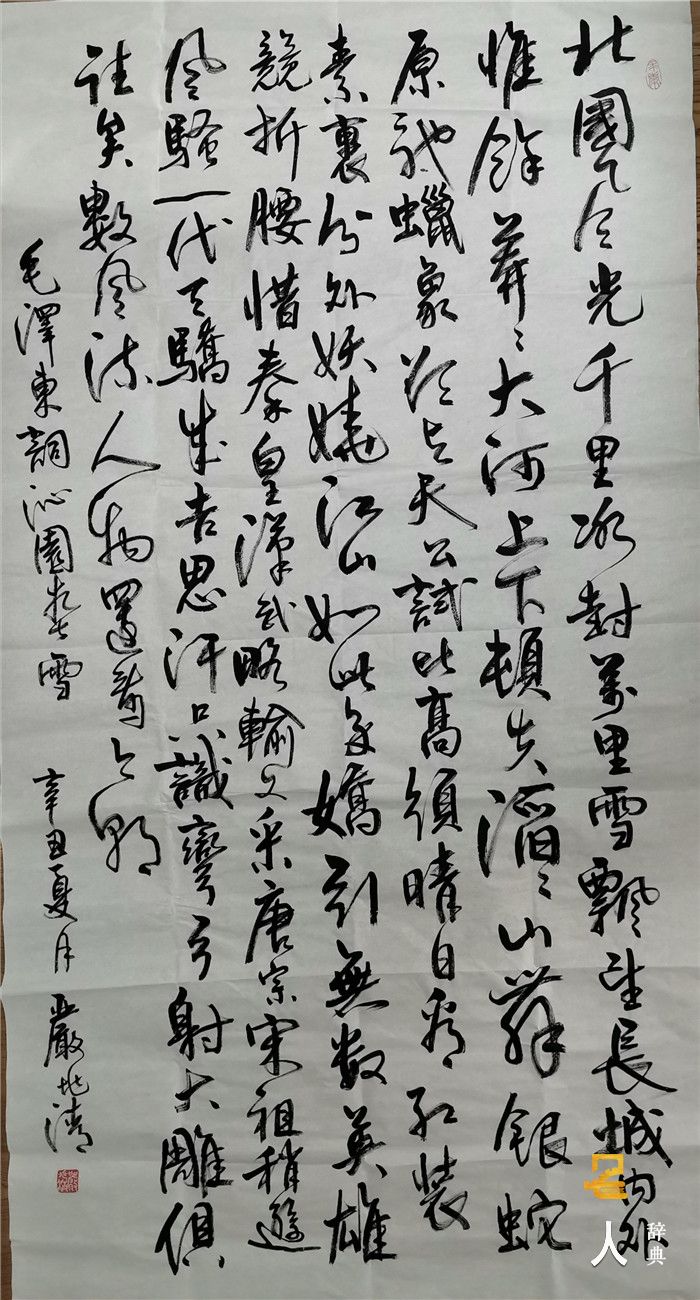 北國風光千里冰封萬里雪飄望長城內外
惟餘莽〻大河上下頓失滔〻山舞銀蛇
原馳蠟象欲与天公試比高須晴日看紅裝
素裹分外妖嬈江山如此多嬌引無数英雄
競折腰惜秦皇漢武略輸文采唐宗宋祖稍遜
風騷一代天驕成吉思汗只識彎弓射大雕俱
往矣數風流人物還看今朝
毛澤東詞沁園春雪 辛丑夏月 嚴清
名人辞典